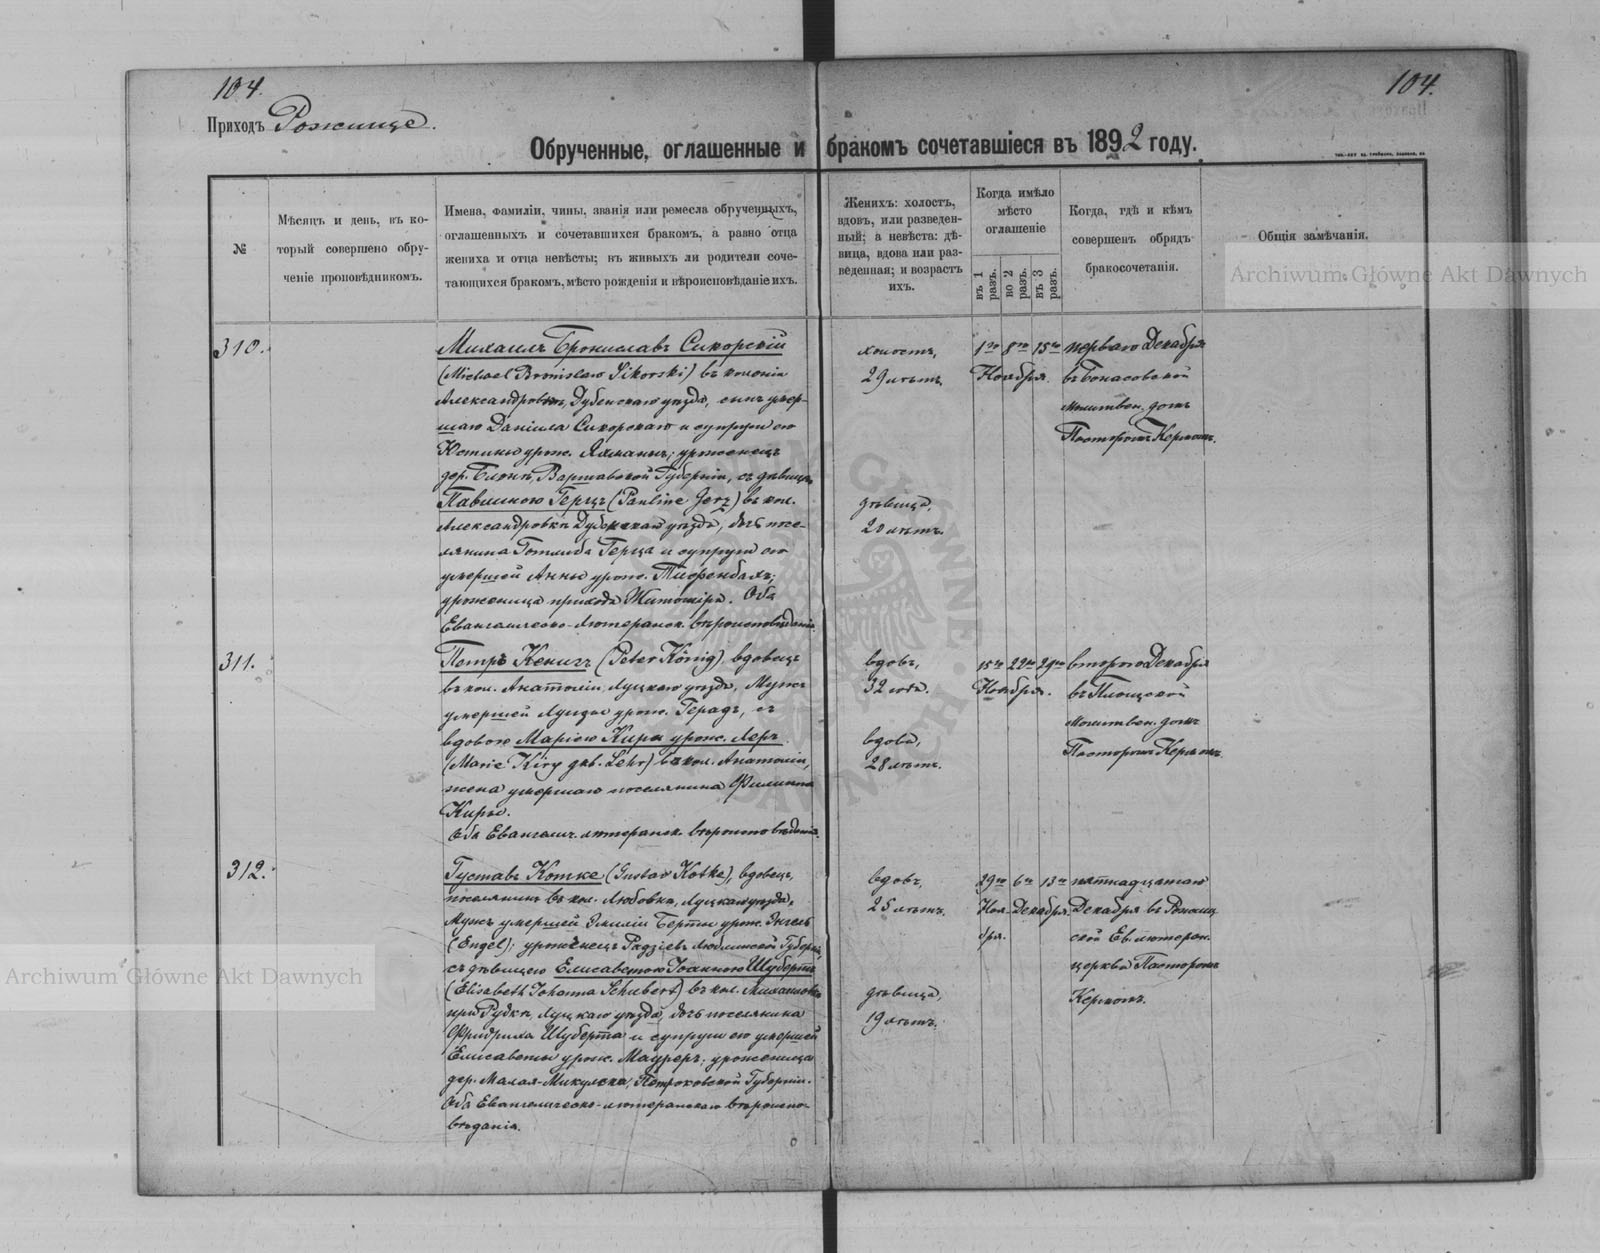 104.
104.
Приходъ Рожище.
Обрученные, оглашенные и бракомъ сочетавшіеся въ 1892 году.
№
Мѣсяцъ и день, въ ко-
торый совершено обру-
ченіе проповѣдникомъ.
Имена, фамиліи, чины, званія или ремесла обрученныхъ,
оглашенныхъ и сочетавшихся бракомъ, а равно отца
жениха и отца невѣсты; въ живыхъ ли родители соче-
тающихся бракомъ, мѣсто рожденія и вѣроисповѣданіе ихъ.
Женихъ: холостъ,
вдовъ, или разведен-
ный; а невѣста: дѣ-
вица, вдова или раз-
веденная; и возрастъ
ихъ.
Когда имѣло
мѣсто
оглашеніе
въ 1 разъ.
во 2 разъ.
въ 3 разъ.
Когда, гдѣ и кѣмъ
совершенъ обрядъ
бракосочетанія.
Общія замѣчанія.
310.
Михаилъ Брониславъ Сикорскій
(Michael Bronislaw Sikorski) въ колоніи
Александровкѣ, Дубенскаго уѣзда, сынъ умер-
шаго Даніила Сикорскаго и супруги его
Юстины урож. уроженецъ
дер. Блоне, Варшавской Губерніи, съ дѣвицею
Павлиною Герцъ (Pauline Gerz) въ кол.
Александровкѣ Дубенскаго уѣзда, дочь посе-
лянина Готлиба Герца и супруги его
умершей Анны урож. Тифенбахъ;
уроженица прихода Житоміръ. Оба
Евангелическо-лютеранск. вѣроисповѣданія.
холостъ,
29 лѣтъ.
дѣвица,
20 лѣтъ.
1го 8го 15го
Ноября
перваго Декабря
въ
молитвен. домѣ
Пасторомъ Кермомъ.
311.
Петръ Кенигъ (Peter König), вдовецъ
въ кол. Анатоліи, Луцкаго уѣзда, Мужъ
умершей Луизы урож. Герадъ, съ
вдовою Маріею Кири урож. Леръ
(Marie Kiry geb. Lehr) въ кол. Анатоліи,
жена умершаго поселянина Филиппа
Кири.
Оба Евангелич. лютеранск. вѣроисповѣданія.
вдовъ,
32 года.
вдова,
28 лѣтъ.
15го 22го 29го
Ноября.
второго Декабря
въ
молитвен. домѣ
Пасторомъ Кермомъ.
312.
Густавъ Котке (Gustav Kotke), вдовецъ,
поселянинъ въ кол. Любовка, Луцкаго уѣзда,
Мужъ умершей Эмиліи Берты урож. Энгель
(Engel); уроженецъ Радзіевъ Люблинской Губерніи,
съ дѣвицею Елисаветою Іоанною Шубертъ
(Elisabeth Johanna Schubert) въ кол. Михаиловкѣ
при Рудкѣ, Луцкаго уѣзда, дочь поселянина
Фридриха Шуберта и супруги его умершей
Елисаветы урож. Мауреръ; уроженица
дер. Малая-Микулска, Петроковской Губерніи.
Оба Евангелическо-лютеранскаго вѣроиспо-
вѣданія.
вдовъ,
25 лѣтъ.
дѣвица,
19 лѣтъ.
29го 6го 13го
Ноя- Декабря.
бря.
пятнадцатаго
Декабря въ Рожищ-
ской Ев. лютеран.
церкви Пасторомъ
Кермомъ.
Archiwum Główne Akt Dawnych
Archiwum Główne Akt Dawnych